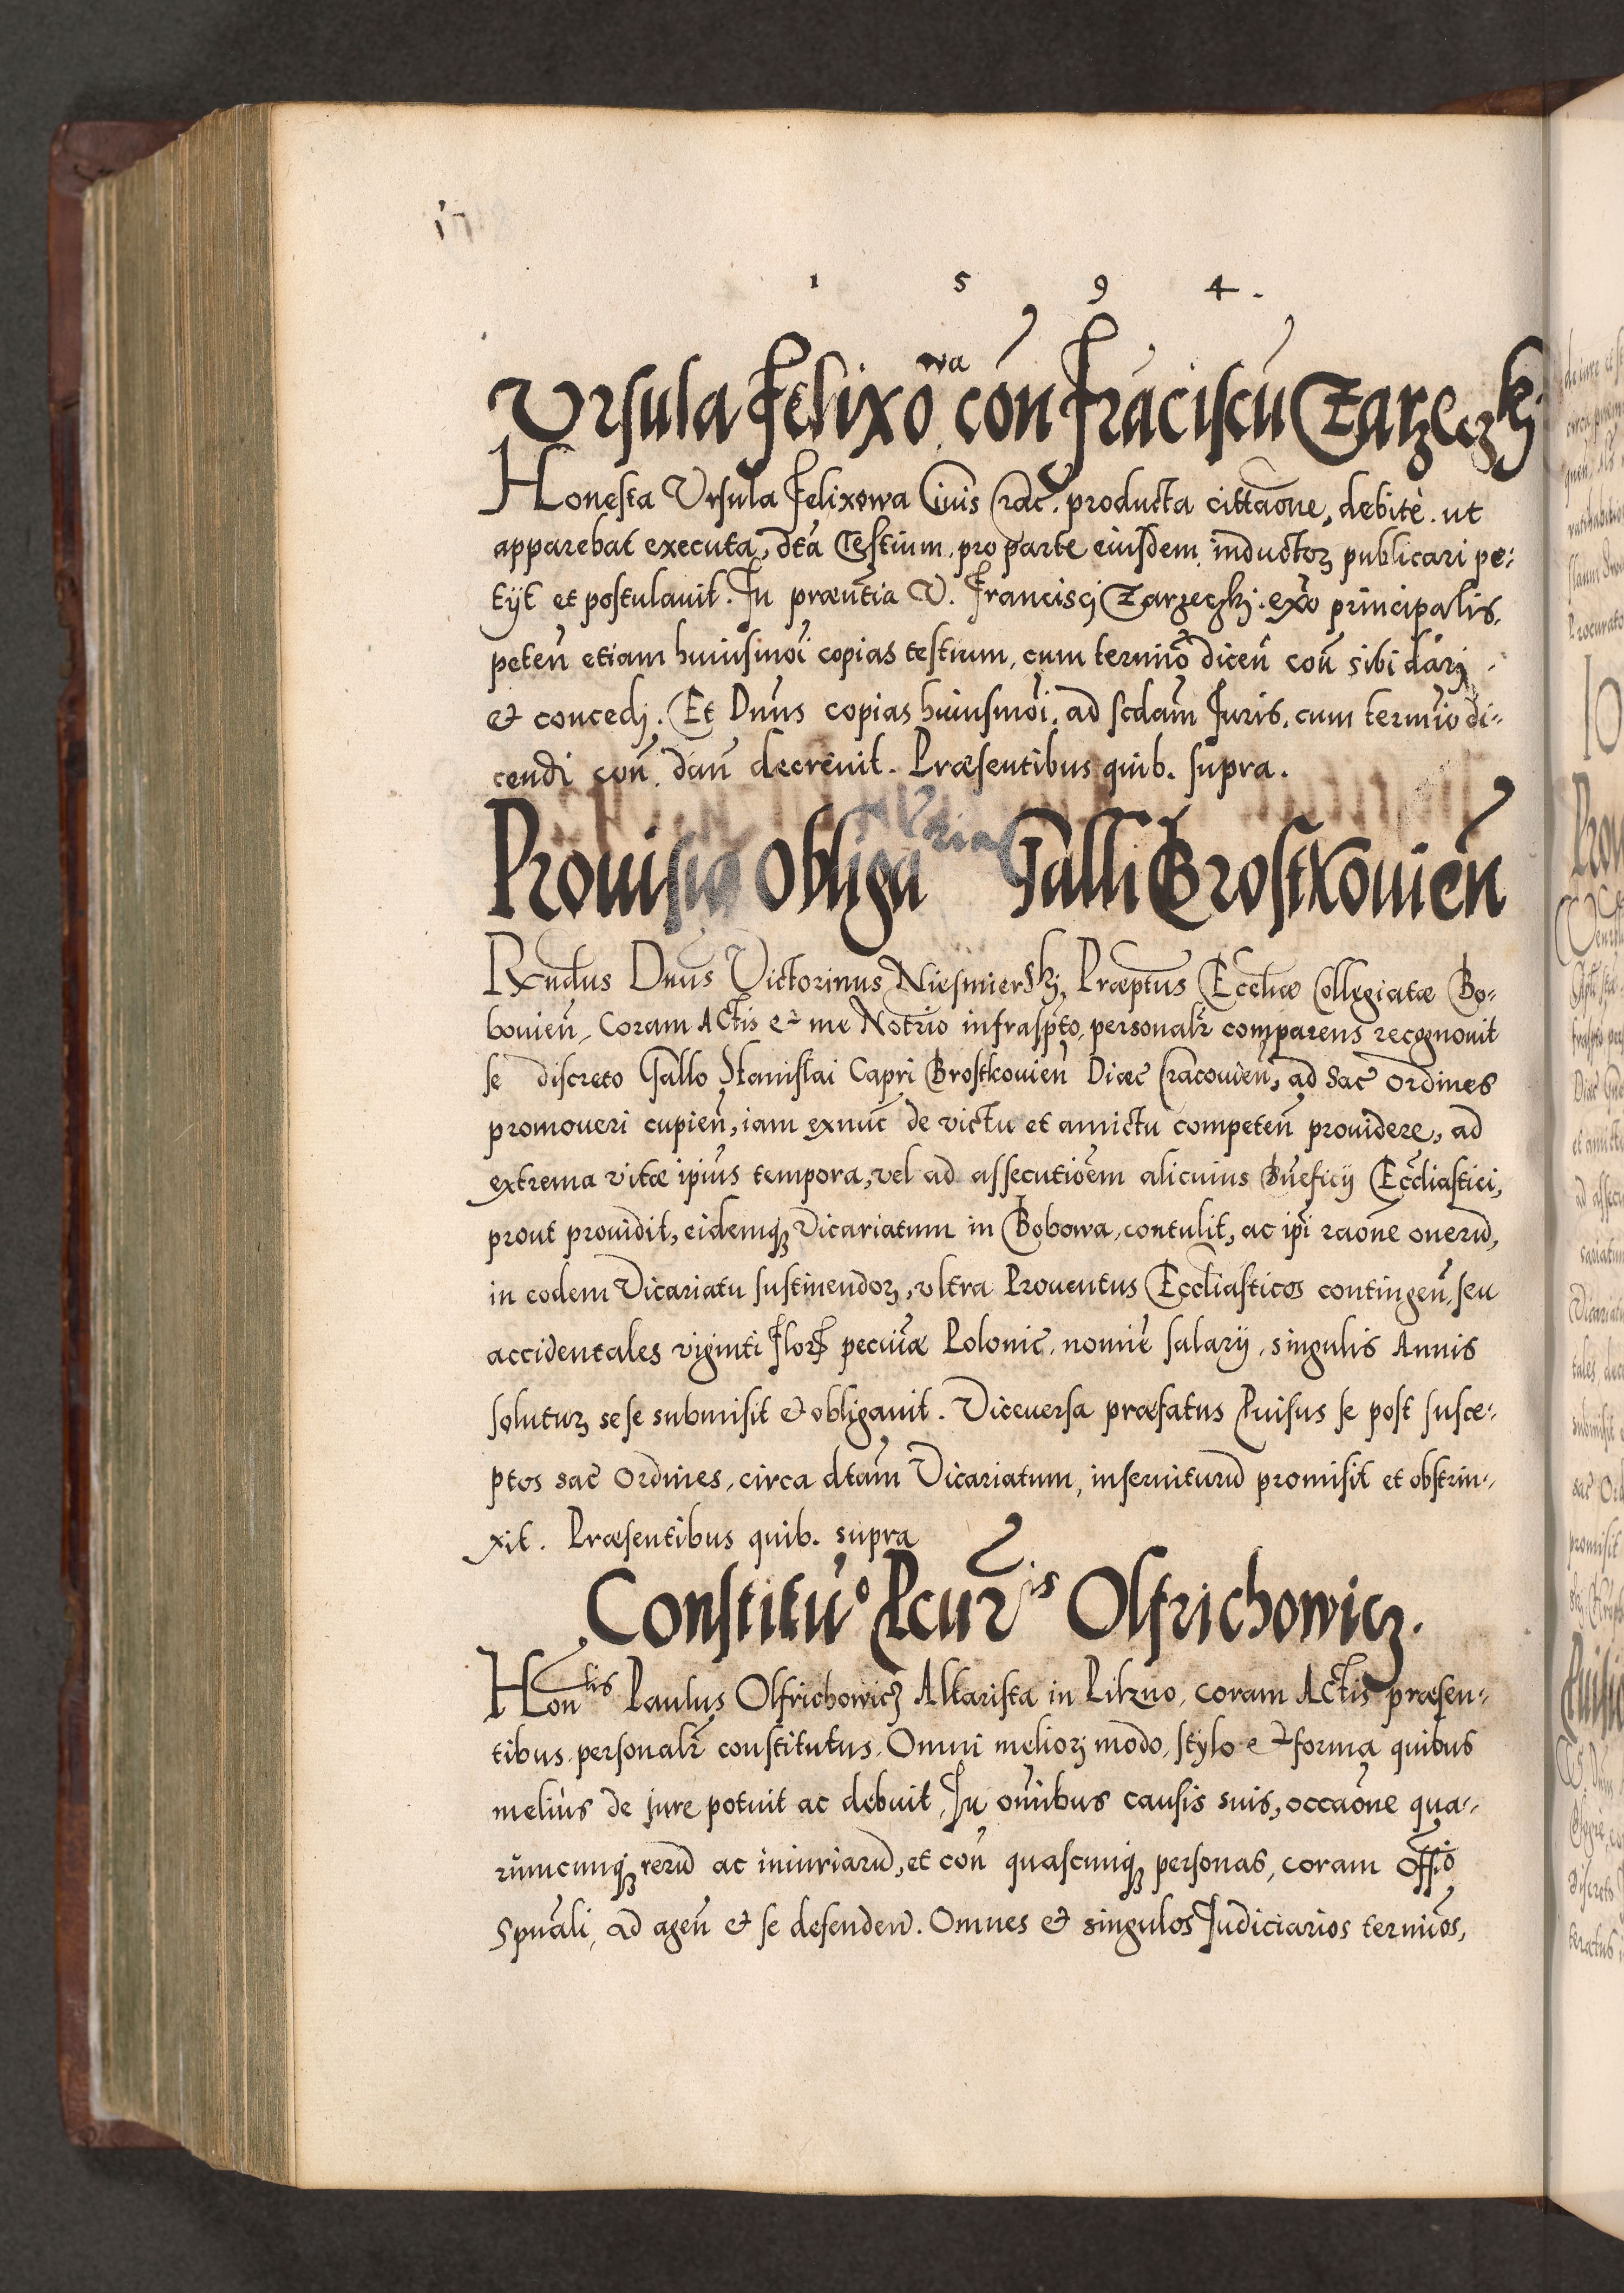 1 5 9 4.
Vrsula Felixo wa con̄ Frāciscū Zarzeczkj.
Honesta Vrsula Felixowa Ciuis Crac̄. producta cittaōne, debitè. ut
apparebat executa, dt̄a Testium, pro parte eiusdem inductoꝝ publicari pe:
tijt et postulauit. In præn̄tia D. Franciscj Zarzeczkj. ex̄o principalis,
peten̄ etiam huiusmōi copias testium, cum termīo dicen̄ con̄ sibi dārj
et concedj. Et Dn̄us copias huiusmōi, ad scdam̄ Juris, cum termīo di=
cendi con̄. dan̄ decreuit. Præsentibus quib. supra.
Prouisio obliga ria Galli Brostkouien̄
Rndus Dn̄us Victorinus Niesmierskj, Præp̄tus Eccl̄iæ Collegiatæ Bo=
bouien̄, Coram Actis et me Notrīo infrasp̄to, personalr̄ comparens recognouit
se discreto Gallo Stanislai Capri Brostkouien̄ Diœc̄ Cracouien̄, ad Sac̄ ordines
promoueri cupien̄, iam exnuc̄ de victu et amictu competen̄ prouidere, ad
extrema vitæ ipīus tempora, vel ad assecutiōem alicuius Bn̄eficij Eccl̄iastici,
prout prouidit, eidemqꝫ Vicariatum in Bobowa, contulit, ac ip̄i raōne onerū,
in eodem Vicariatu sustinendoꝝ, vltra Prouentus Eccl̄iasticos contingen̄, seu
accidentales viginti Flor̄ pecun̄æ Polonic̄, nomīe salarij, singulis Annis
soluturꝝ sese submisit et obligauit. Viceuersa præfatus Puisus se post susce=
ptos sac̄ ordines, circa dtam̄ Vicariatum, inseruiturū promisit et obstrin=
xit. Præsentibus quib. supra
Constitūo Pcur̄is Olfrichowicz.
Hontlis Paulus Olfrichowicz Altarista in Pilzno, coram Actis præsen=
tibus, personalr̄ constitutus, Omni meliorj modo, stylo et forma quibus
melius de jure potuit ac debuit, In om̄ibus causis suis, occaōne qua=
rumcunqꝫ rerū ac iniuriarū, et con̄ quascunqꝫ personas, coram Offō
Spuāli, ad agen̄ et se defenden̄. Omnes et singulos Judiciarios termīos,